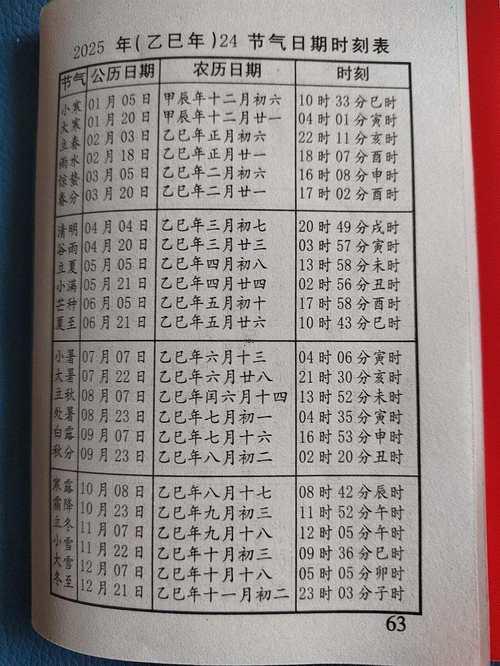 2025 年(乙巳年)24 节气日期时刻表
节气 公历日期 农历日期 时刻
小寒 01 月 05 日 甲辰年十二月初六 10 时 33 分巳时
大寒 01 月 20 日 甲辰年十二月廿一 04 时 01 分寅时
立春 02 月 03 日 乙巳年正月初六 22 时 11 分亥时
雨水 02 月 18 日 乙巳年正月廿一 18 时 07 分酉时
惊蛰 03 月 05 日 乙巳年二月初六 16 时 08 分申时
春分 03 月 20 日 乙巳年二月廿一 17 时 02 分酉时
清明 04 月 04 日 乙巳年三月初七 20 时 49 分戌时
谷雨 04 月 20 日 乙巳年三月廿三 03 时 57 分寅时
立夏 05 月 05 日 乙巳年四月初八 13 时 58 分未时
小满 05 月 21 日 乙巳年四月廿四 02 时 56 分丑时
芒种 06 月 05 日 乙巳年五月初十 17 时 58 分酉时
夏至 06 月 21 日 乙巳年五月廿六 10 时 43 分巳时
小暑 07 月 07 日 乙巳年六月十三 04 时 06 分寅时
大暑 07 月 22 日 乙巳年六月廿八 21 时 30 分亥时
立秋 08 月 07 日 乙巳年闰六月十四 13 时 52 分未时
处暑 08 月 23 日 乙巳年七月初一 04 时 35 分寅时
白露 09 月 07 日 乙巳年七月十六 16 时 53 分申时
秋分 09 月 23 日 乙巳年八月初二 02 时 20 分丑时
寒露 10 月 08 日 乙巳年八月十七 08 时 42 分辰时
霜降 10 月 23 日 乙巳年九月初三 11 时 52 分午时
立冬 11 月 07 日 乙巳年九月十八 12 时 05 分午时
小雪 11 月 22 日 乙巳年十月初三 09 时 36 分巳时
大雪 12 月 07 日 乙巳年十月十八 05 时 05 分卯时
冬至 12 月 21 日 乙巳年十一月初二 23 时 03 分子时
63